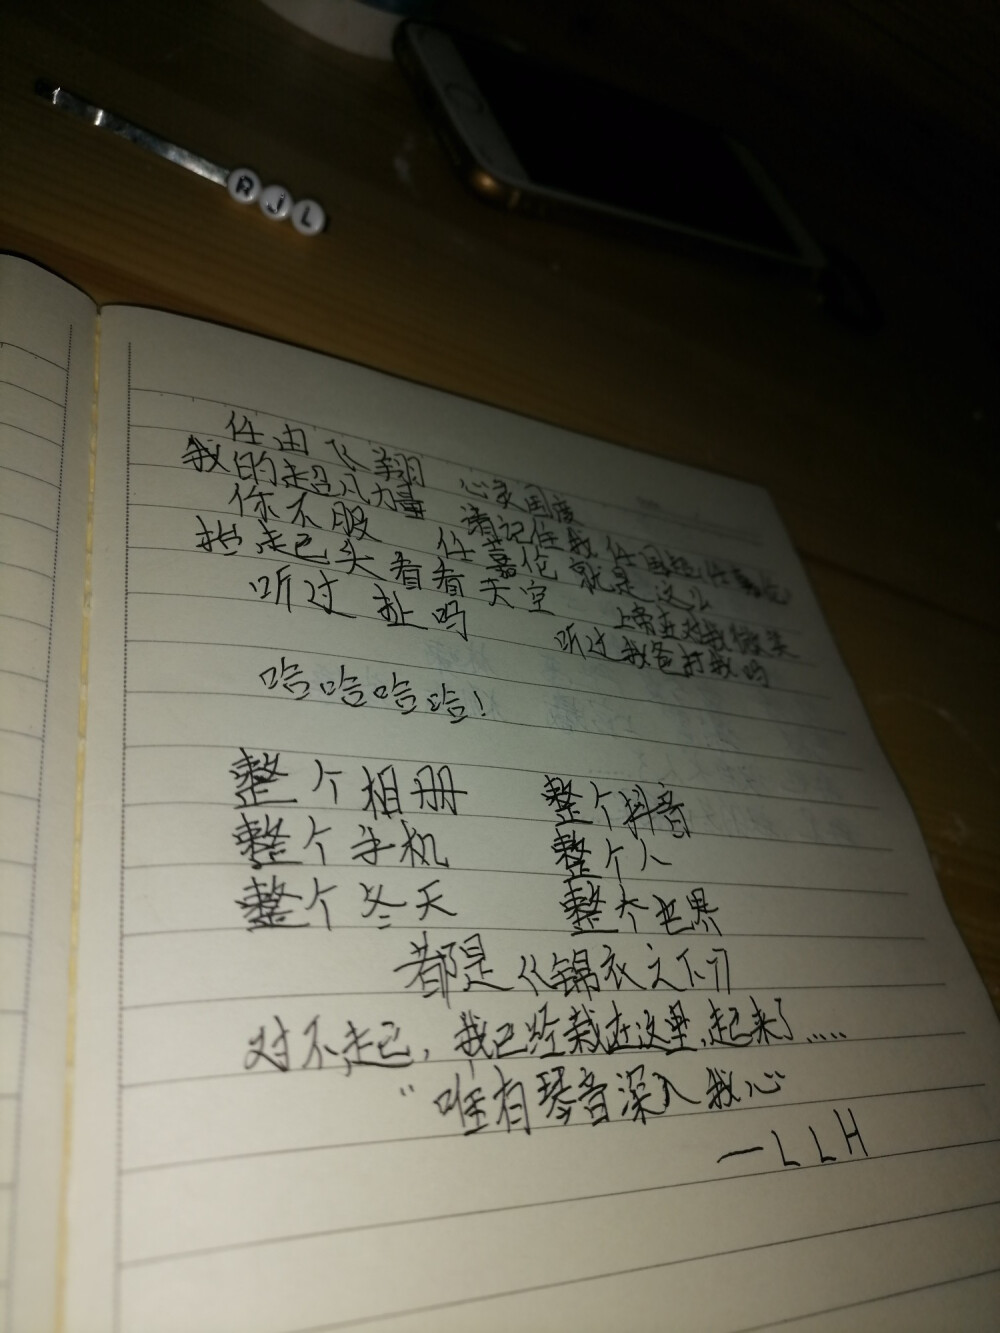 RJL
任由飞翔 心灵国度
我的超凡力量 请记住我任国超任嘉伦
你不服 任嘉伦就是这么
抬起头看看天空 上帝在对我微笑
听过 扯吗 听过我爸打我吗
哈哈哈哈!
整个相册 整个抖音
整个手机 整个人
整个冬天 整个世界
都是《锦衣之下》
对不起,我已经栽在这里,起来了.....
“唯有琴音深入我心”
—LLH